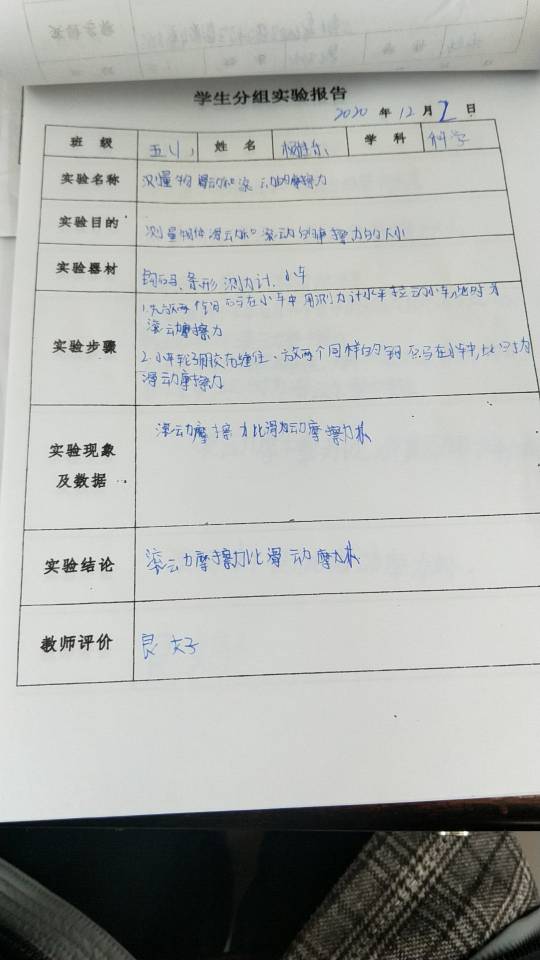 学生分组实验报告
2020 年 12 月 2 日
班 级 五(1) 姓 名 学 科 科学
实验名称 测量物 滑动和滚动的摩擦力
实验目的 测量物体滑动和滚动的摩擦力的大小
实验器材 钩码、条形测力计、小车
实验步骤 1.先放两个钩码在小车中 用测力计水平拉动小车,此时为
滚动摩擦力
2.小车轮子用胶布缠住、放两个同样的钩码在小车中,此时为
滑动摩擦力
实验现象
及数据
滚动摩擦力比滑动摩擦力
实验结论 滚动摩擦力比滑动摩力
教师评价 良好